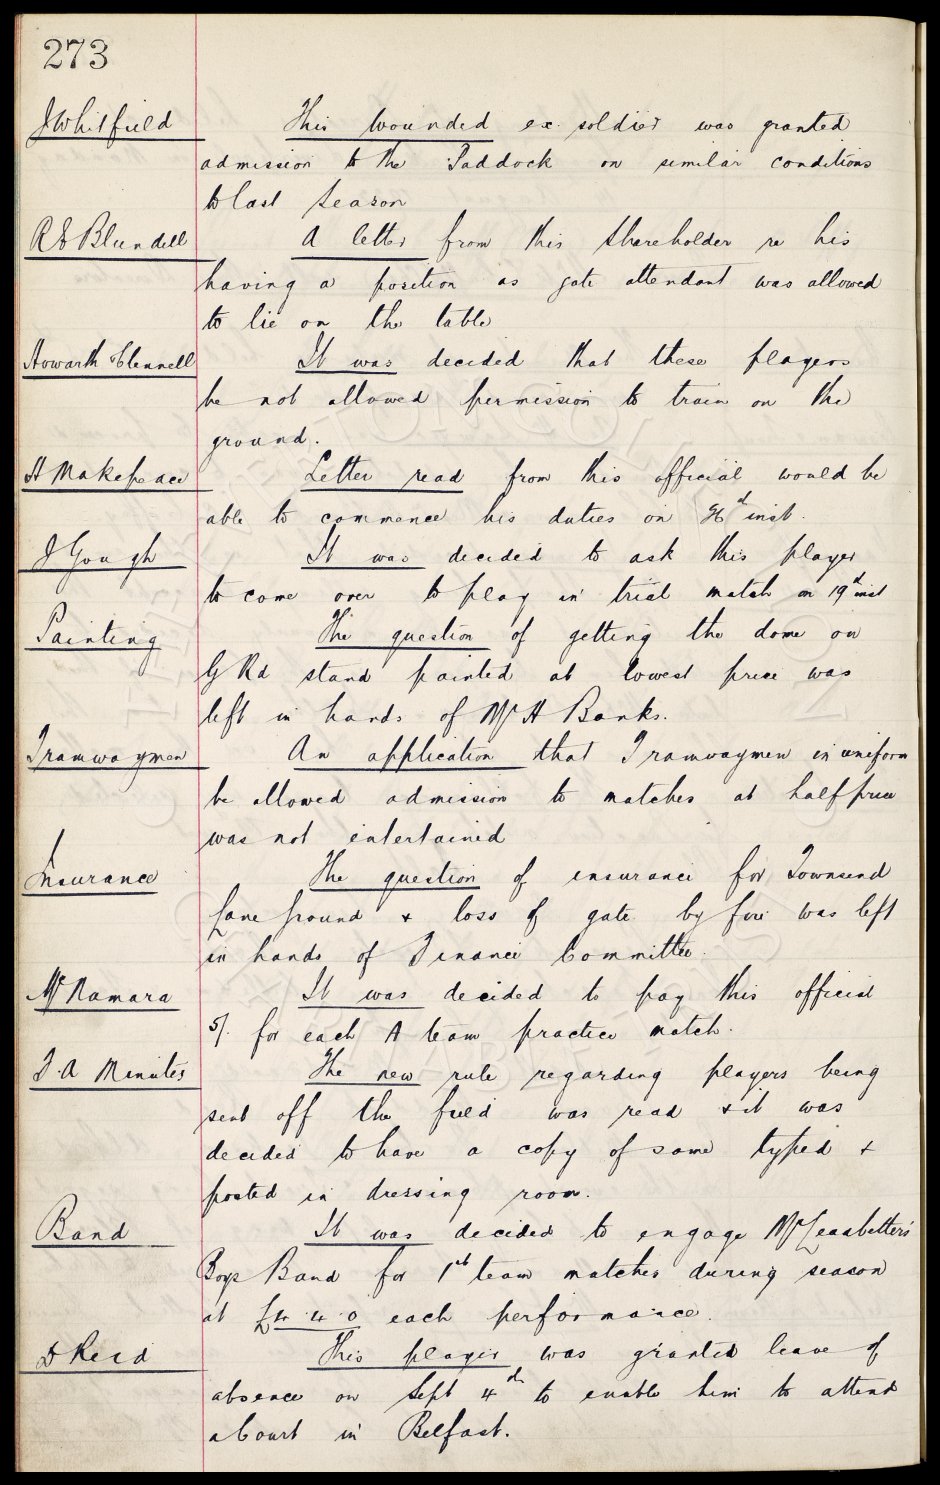 273
J Whitfield This wounded ex. soldier was granted
admission to the Paddock on similar conditions
to last season
R E Blundell A letter from this shareholder re his
having a position as gate attendant was allowed
to lie on the table
Howarth Clennell It was decided that these players
be not allowed permission to train on the
ground.
H Makepeace Letter read from this official would be
able to commence his duties on inst.
J Gough It was decided to ask this player
to come over to play in trial match on 19th inst
Painting The question of getting the dome on
G Rd stand painted at lowest price was
left in hands of Mr H Banks.
Tramwaymen An application that Tramwaymen in uniform
be allowed admission to matches at half price
was not entertained
Insurance The question of insurance for Townsend
Lane ground & loss of gate by fire was left
in hands of Finance Committee.
McNamara It was decided to pay this official
5/. for each A team practice match.
F.A Minutes The new rule regarding players being
sent off the field was read & it was
decided to have a copy of same typed &
posted in dressing room.
Band It was decided to engage Mr Leadbetter's
Boys Band for 1st team matches during season
at £4.4.0 each performance.
D Reid This player was granted leave of
absence on Sept 4th to enable him to attend
a Court in Belfast.